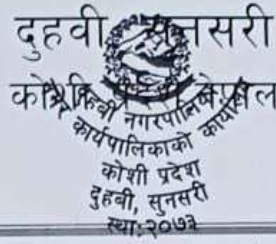 दुहवी सुनसरी
को
दुहवी नगरपालिका
कार्यपालिकाको कार्यालय
कोशी प्रदेश
दुहवी, सुनसरी
स्था:२०७३